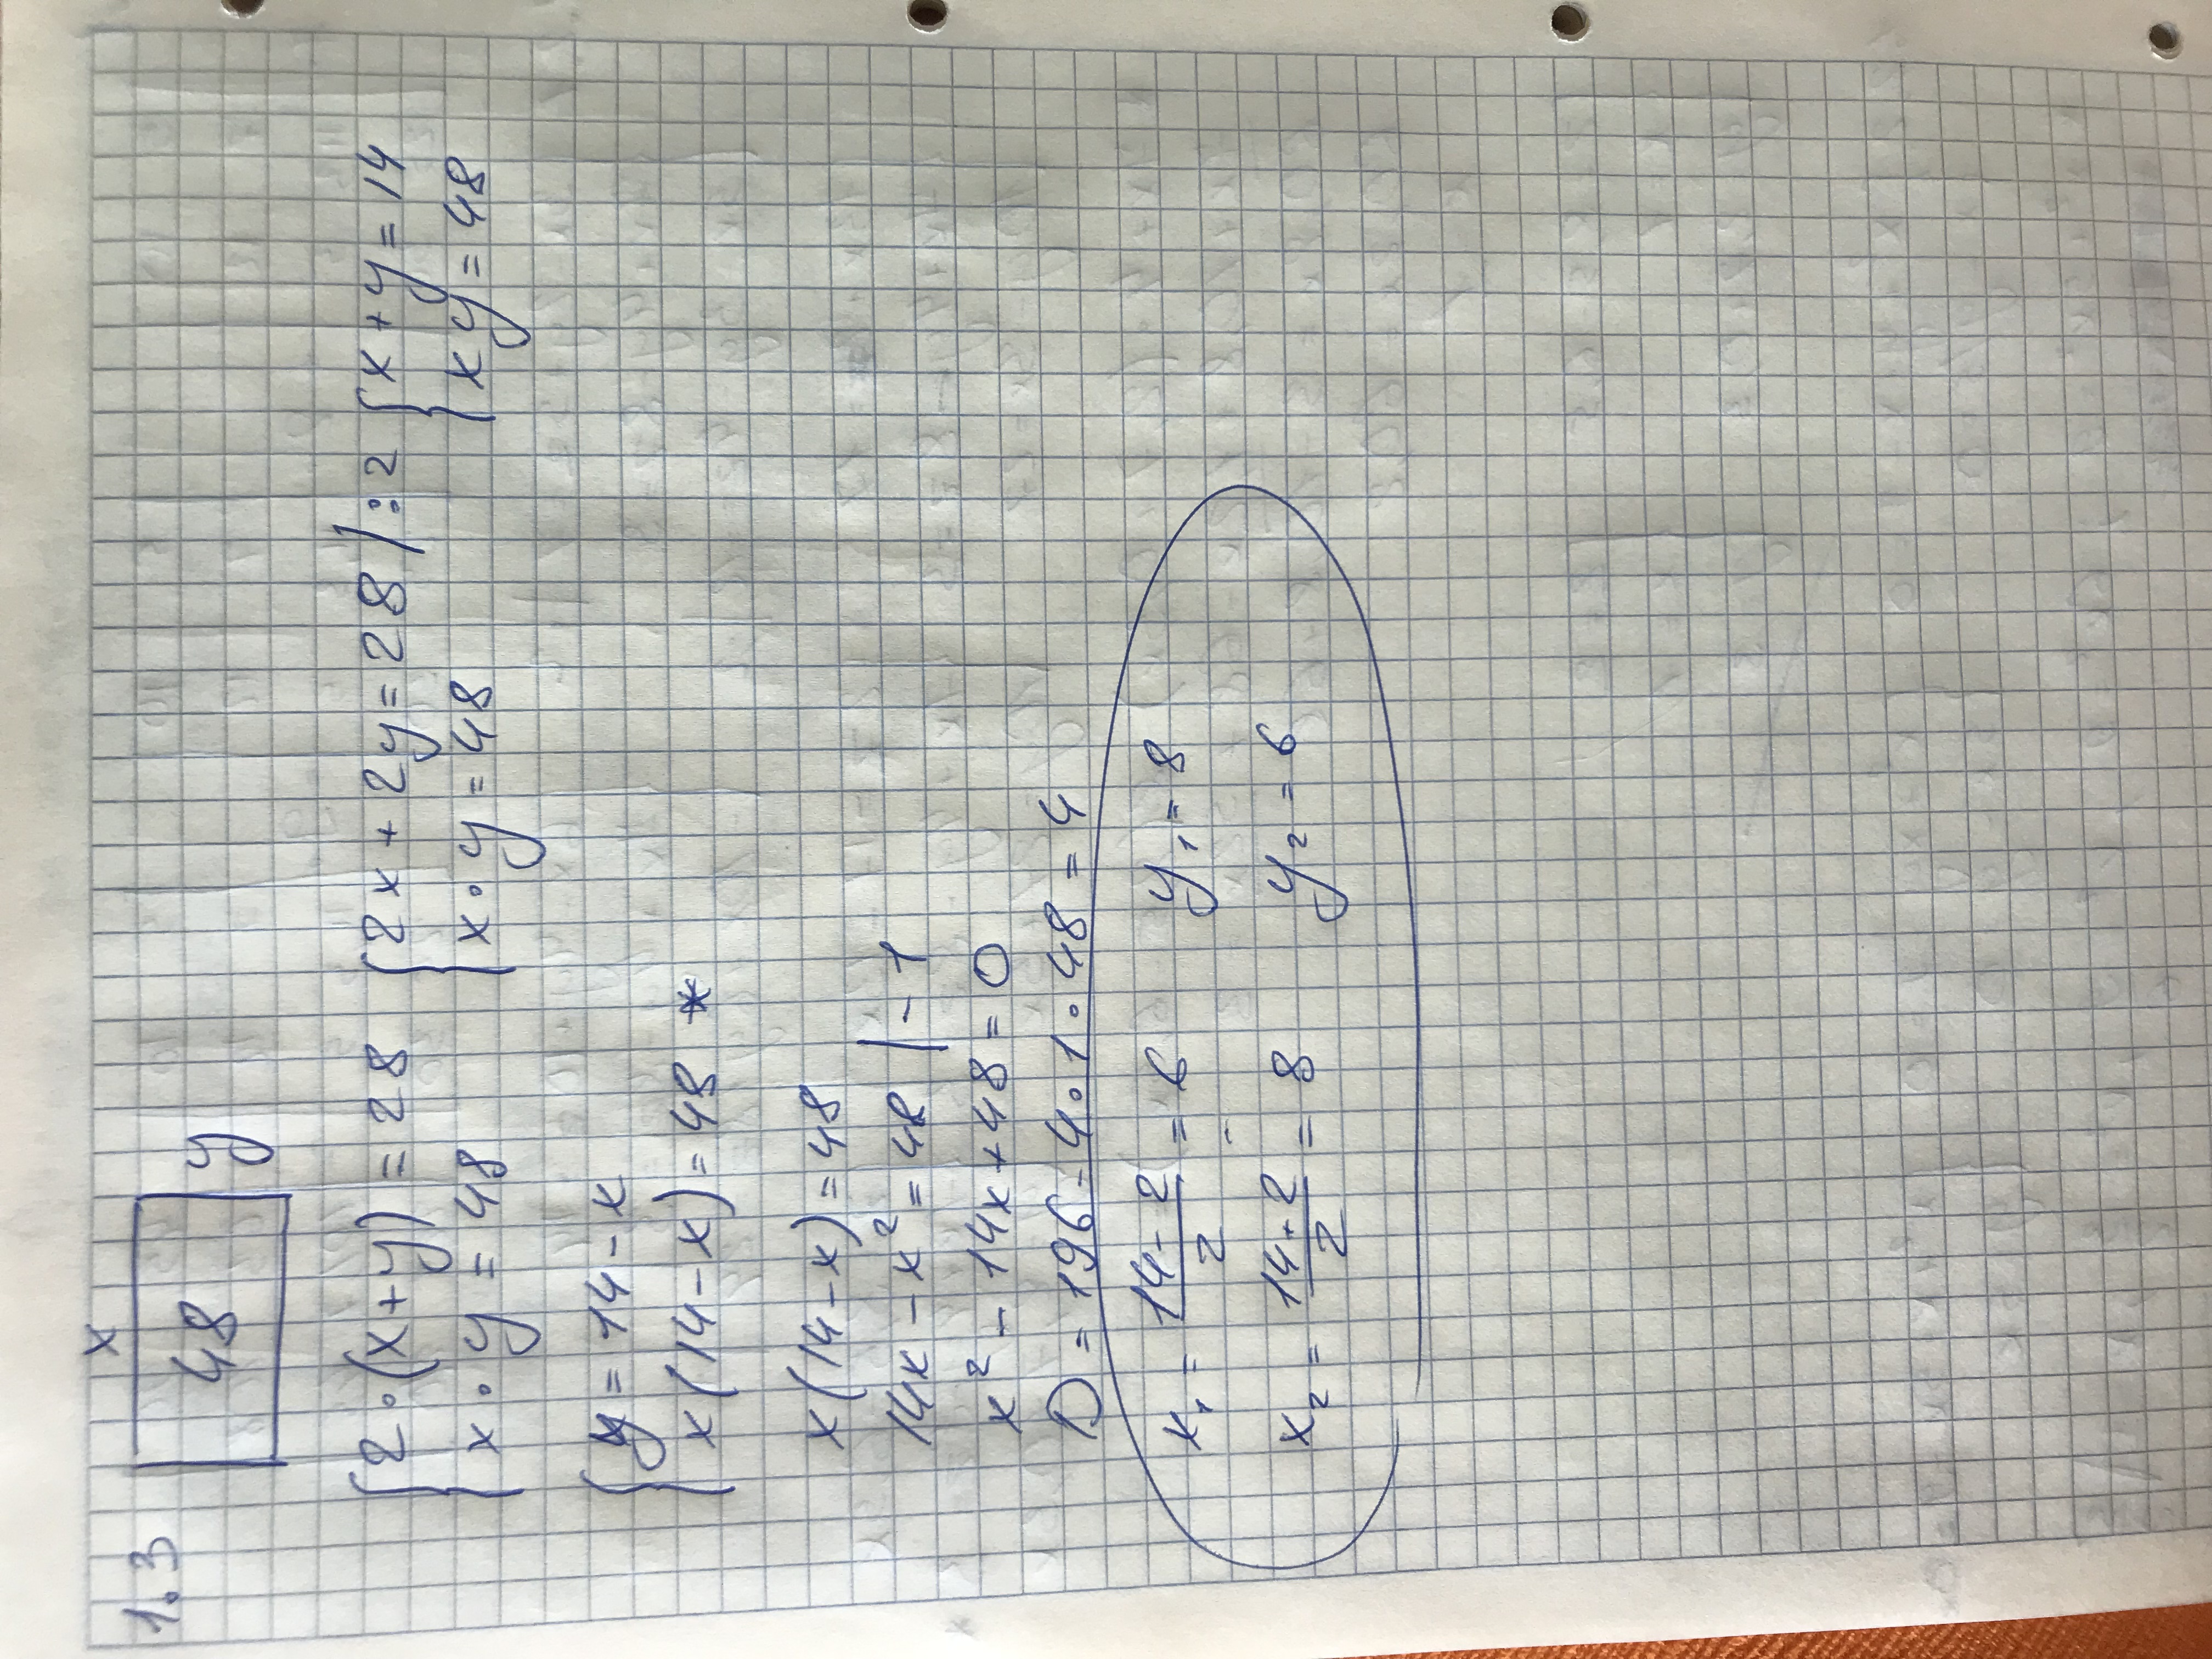 1.3
x
48 y
{ 2·(x+y) = 28 { 2x + 2y = 28 |:2 { x+y = 14
x · y = 48 x · y = 48 xy = 48
{ y = 14 - x
x(14-x) = 48 *
x(14-x) = 48
14x - x² = 48 | - 1
x² - 14x + 48 = 0
D = 196 - 4·1·48 = 4
x₁ = (14-2)/2 = 6 y₁ = 8
x₂ = (14+2)/2 = 8 y₂ = 6